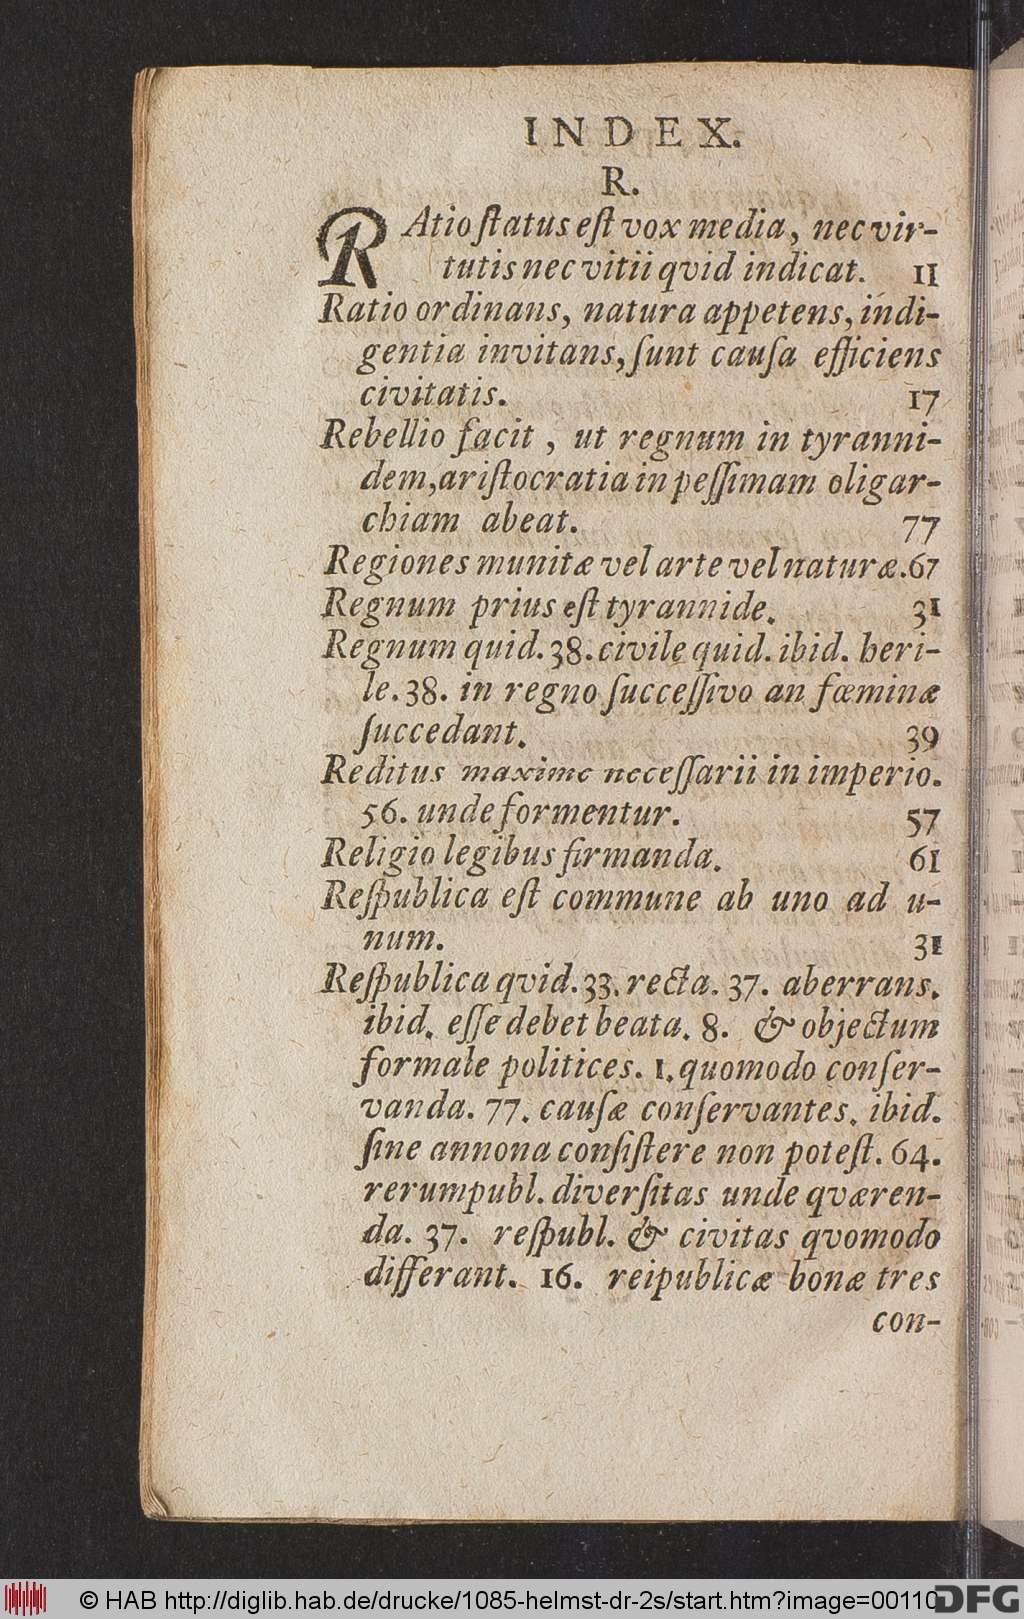 INDEX.
R.
RAtio ſtatus eſt vox media, nec vir-
tutis nec vitii qvid indicat. 11
Ratio ordinans, natura appetens, indi-
gentia invitans, ſunt cauſa efficiens
civitatis. 17
Rebellio facit, ut regnum in tyranni-
dem, ariſtocratia in peſſimam oligar-
chiam abeat. 77
Regiones munitæ vel arte vel naturæ. 67
Regnum prius eſt tyrannide. 31
Regnum quid. 38. civile quid. ibid. heri-
le. 38. in regno ſucceſſivo an fœminæ
ſuccedant. 39
Reditus maxime neceſſarii in imperio.
56. unde formentur. 57
Religio legibus firmanda. 61
Reſpublica eſt commune ab uno ad u-
num. 31
Reſpublica qvid. 33. recta. 37. aberrans.
ibid. eſſe debet beata. 8. & objectum
formale politices. 1. quomodo conſer-
vanda. 77. cauſæ conſervantes. ibid.
ſine annona conſiſtere non poteſt. 64.
rerumpubl. diverſitas unde qværen-
da. 37. reſpubl. & civitas qvomodo
differant. 16. reipublicæ bonæ tres
con-
© HAB http://diglib.hab.de/drucke/1085-helmst-dr-2s/start.htm?image=00110
DFG